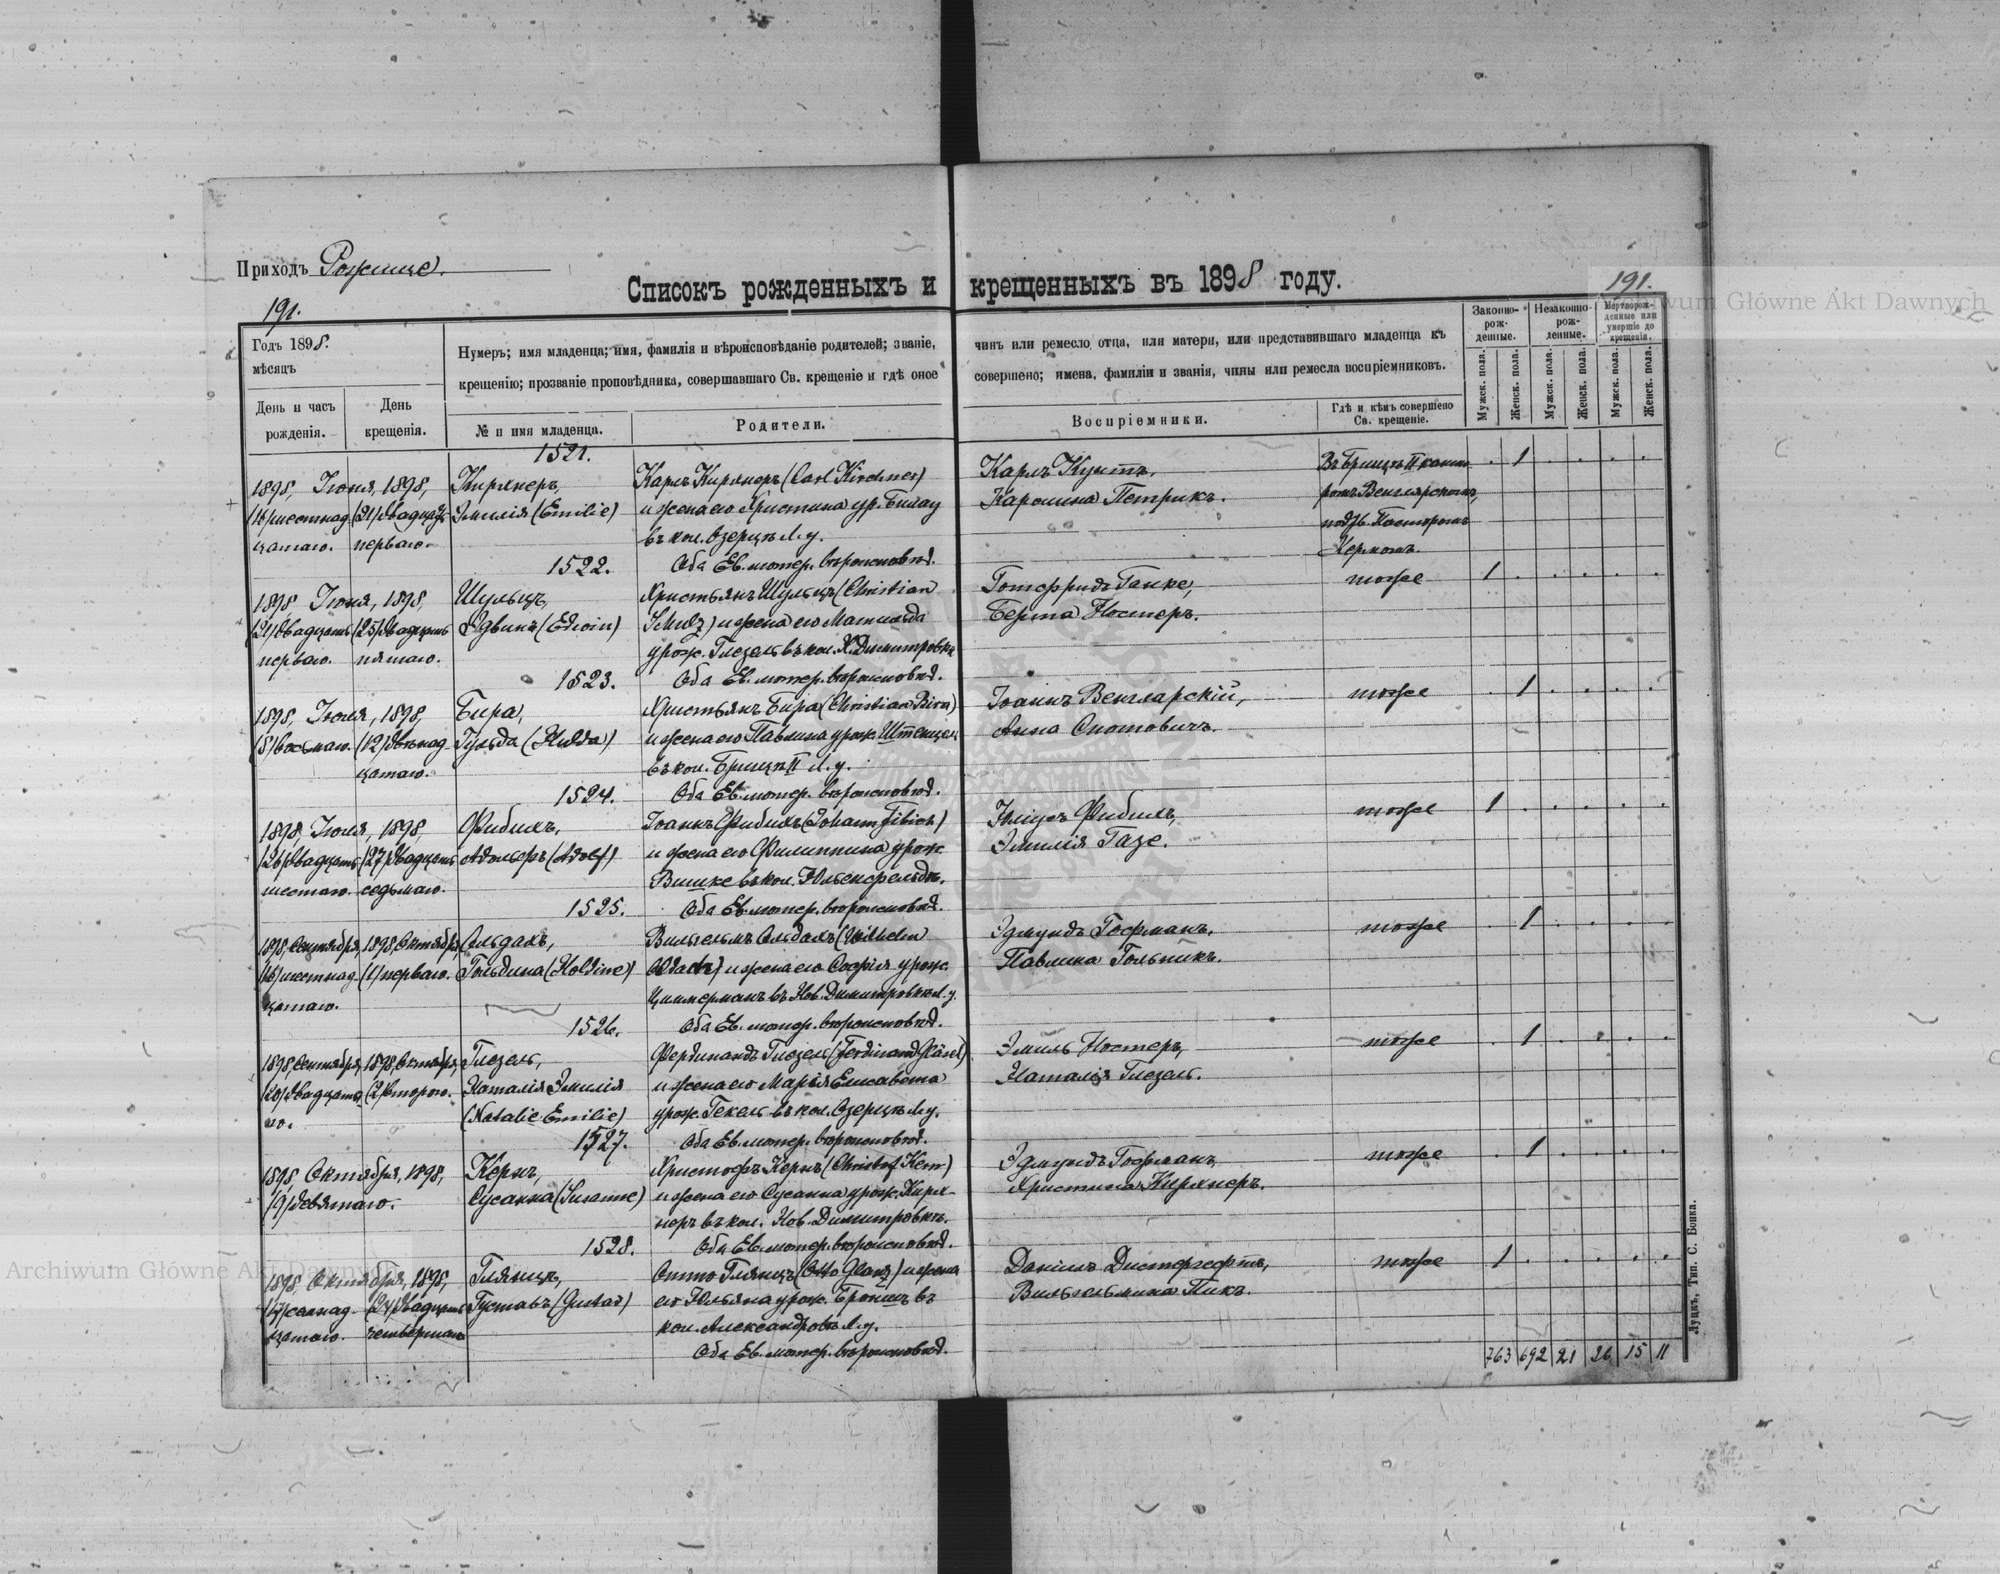 Приходъ Рожище.
191.
191.
Списокъ рожденныхъ и крещенныхъ въ 1898 году.
Archiwum Główne Akt Dawnych
Годъ 1898.
мѣсяцъ
День и часъ рожденія.
День крещенія.
Нумеръ; имя младенца; имя, фамилія и вѣроисповѣданіе родителей; званіе, чинъ или ремесло отца, или матери, или представившаго младенца къ
крещенію; прозваніе проповѣдника, совершавшаго Св. крещеніе и гдѣ оное совершено; имена, фамиліи и званія, чины или ремесла воспріемниковъ.
№ и имя младенца.
Родители.
Воспріемники.
Гдѣ и кѣмъ совершено Св. крещеніе.
Законно-рож-денные.
Незаконно-рож-денные.
Мертворож-денные или умершіе до крещенія.
Мужск. пола.
Женск. пола.
Мужск. пола.
Женск. пола.
Мужск. пола.
Женск. пола.
1521.
1898, Іюня, 1898,
(16) шестнад
цатаго.
(21) двадцать
перваго.
Кирхнеръ,
Эмилія (Emilie)
Карлъ Кирхнеръ (Carl Kirchner)
и жена его Христина ур. Билау
въ кол. Озерцѣ Л. у.
Оба Ев. лютер. вѣроисповѣд.
Карлъ Кунтъ,
Каролина Петрикъ.
Въ Брищѣ II канто
ромъ Венглярскимъ,
подтв. Пасторомъ
Кермомъ.
1
1522.
1898 Іюня, 1898,
(21) двадцать
перваго.
(25) двадцать
пятаго.
Шульцъ,
Эдвинъ (Edwin)
Христьянъ Шульцъ (Christian
Schulz) и жена его Матильда
урож. Глезель въ кол. Н. Димитровка
Оба Ев. лютер. вѣроисповѣд.
Готфридъ Ганке,
Берта Ностеръ.
тоже
1
1523.
1898, Іюля, 1898,
(8) восьмаго.
(12) двѣнад
цатаго.
Бира,
Гульда (Hulda)
Христьянъ Бира (Christian Bira)
и жена его Павлина урож. Штенцель
въ кол. Брищѣ II Л. у.
Оба Ев. лютер. вѣроисповѣд.
Іоаннъ Венглярскій,
Анна Опотовичъ.
тоже
1
1524.
1898, Іюля, 1898,
(26) двадцать
шестаго.
(27) двадцать
седьмаго.
Фибихъ,
Адольфъ (Adolf)
Іоаннъ Фибихъ (Johann Fibich)
и жена его Филиппина урож.
Вишке въ кол. Юльенфельдъ.
Оба Ев. лютер. вѣроисповѣд.
Юліусъ Фибихъ,
Эмилія Газе.
тоже
1
1525.
1898, Сентября, 1898, Октября,
(16) шестнад
цатаго.
(1) перваго.
Ольдахъ,
Гольдина (Holdine)
Вильгельмъ Ольдахъ (Wilhelm
Oldach) и жена его Софія урож.
Циммерманъ въ Нов. Димитровкѣ Л. у.
Оба Ев. лютер. вѣроисповѣд.
Эдмундъ Гофманъ,
Павлина Гольникъ.
тоже
1
1526.
1898, Сентября, 1898, Октября,
(20) двадцата
го.
(2) втораго.
Глезель,
Наталія Эмилія
(Natalie Emilie)
Фердинандъ Глезель (Ferdinand Gläsel)
и жена его Марія Елисавета
урож. Гекель въ кол. Озерцѣ Л. у.
Оба Ев. лютер. вѣроисповѣд.
Эмиль Ностеръ,
Наталія Глезель.
тоже
1
1527.
1898, Октября, 1898,
(9) девятаго.
Кернъ,
Сусанна (Susanne)
Христофъ Кернъ (Christof Kern)
и жена его Сусанна урож. Кирх-
неръ въ кол. Нов. Димитровкѣ.
Оба Ев. лютер. вѣроисповѣд.
Эдмундъ Гофманъ,
Христина Кирхнеръ.
тоже
1
1528.
1898, Октября, 1898,
(17) семнад
цатаго.
(24) двадцать
четвертаго
Глянцъ,
Густавъ (Gustav)
Отто Глянцъ (Otto Glanz) и жена
его Юльяна урож. Броншъ въ
кол. Александровкѣ Л. у.
Оба Ев. лютер. вѣроисповѣд.
Даніилъ Дистергефтъ,
Вильгельмина Пикъ.
тоже
1
763 692 21 26 15 11
Луцкъ, Тип. С. Бонка.
Archiwum Główne Akt Dawnych